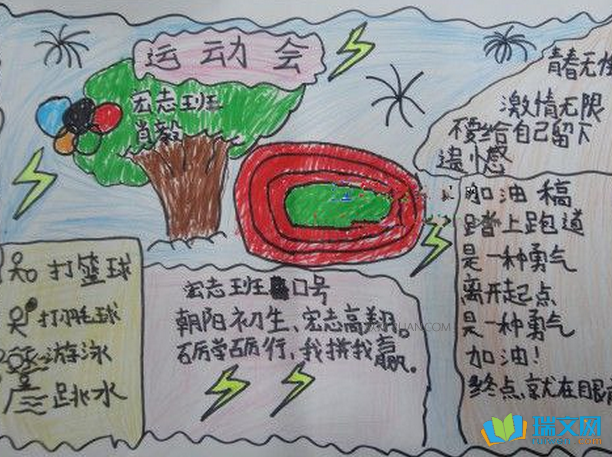 运动会
宏志班
肖毅
青春无悔
激情无限
不要给自己留下
遗憾
加油稿
踏上跑道
是一种勇气
离开起点
是一种勇气
加油!
终点,就在眼前
打篮球
打羽毛球
游泳
跳水
宏志班 口号
朝阳初生、宏志高翔。
砺学砺行,我拼我赢。
瑞文网